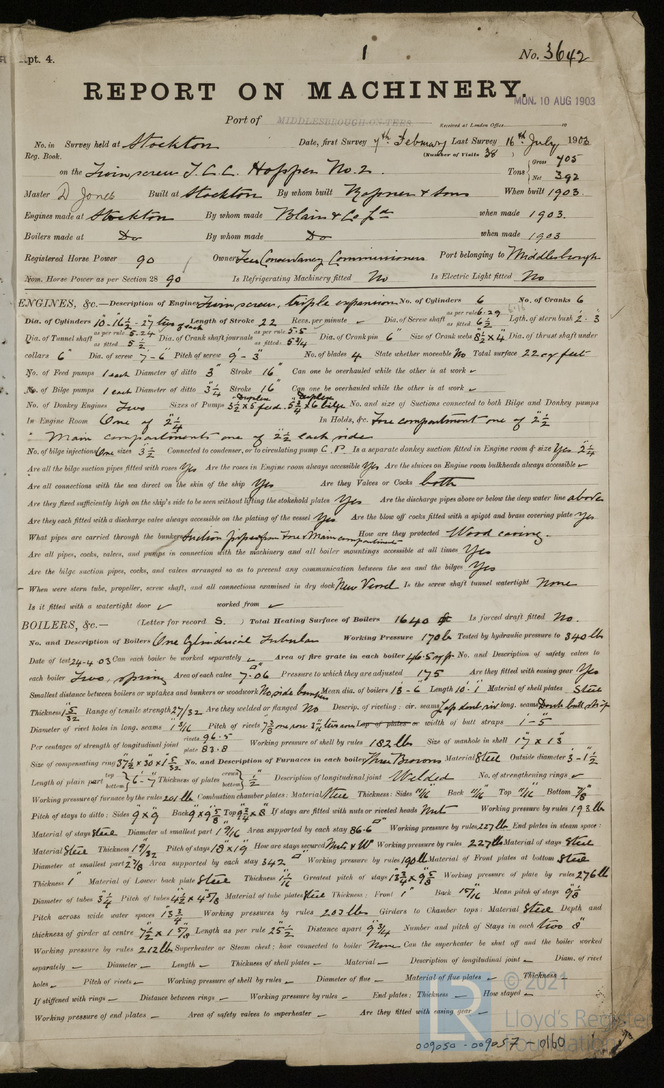 Rpt. 4.
1
No. 3642
REPORT ON MACHINERY.
MON. 10 AUG 1903
Port of MIDDLESBROUGH-ON-TEES Received at London Office
No. in Survey held at Stockton Date, first Survey 7th February Last Survey 16th July 1903
Reg. Book. (Number of Visits 38)
on the Twin screw T.C.C. Hopper No. 2. Tons { Gross 705 Net 392
Master D Jones Built at Stockton By whom built Ropner & Sons When built 1903.
Engines made at Stockton By whom made Blair & Co Ltd when made 1903.
Boilers made at Do By whom made Do when made 1903
Registered Horse Power 90 Owner Tees Conservancy Commissioners Port belonging to Middlesbrough
Nom. Horse Power as per Section 28 90 Is Refrigerating Machinery fitted No Is Electric Light fitted No
ENGINES, &c.—Description of Engines Twin screw, triple expansion No. of Cylinders 6 No. of Cranks 6
Dia. of Cylinders 10-16½-27 two of each Length of Stroke 22 Revs. per minute Dia. of Screw shaft as per rule 6.29 as fitted 6½ Lgth. of stern bush 2-3
Dia. of Tunnel shaft as per rule 5.24 as fitted 5½ Dia. of Crank shaft journals as per rule 5.5 as fitted 5¾ Dia. of Crank pin 6" Size of Crank webs 8½ x 4" Dia. of thrust shaft under
collars 6" Dia. of screw 7-6 Pitch of screw 9-3" No. of blades 4 State whether moveable No Total surface 22 sq feet
No. of Feed pumps 1 each Diameter of ditto 3" Stroke 16" Can one be overhauled while the other is at work ✓
No. of Bilge pumps 1 each Diameter of ditto 3¼ Stroke 16" Can one be overhauled while the other is at work ✓
No. of Donkey Engines Two Sizes of Pumps Duplex 3½ x 5 feed. Duplex 5¾ x 6 bilge No. and size of Suctions connected to both Bilge and Donkey pumps
In Engine Room One of 2¼" In Holds, &c. Fore compartment one of 2½"
Main compartments one of 2½" each side
No. of bilge injections One sizes 3½ Connected to condenser, or to circulating pump C.P. Is a separate donkey suction fitted in Engine room & size Yes 2¼"
Are all the bilge suction pipes fitted with roses Yes Are the roses in Engine room always accessible Yes Are the sluices on Engine room bulkheads always accessible ✓
Are all connections with the sea direct on the skin of the ship Yes Are they Valves or Cocks both
Are they fixed sufficiently high on the ship's side to be seen without lifting the stokehold plates Yes Are the discharge pipes above or below the deep water line above
Are they each fitted with a discharge valve always accessible on the plating of the vessel Yes Are the blow off cocks fitted with a spigot and brass covering plate Yes
What pipes are carried through the bunkers Suction pipes from Fore & Main compartments How are they protected Wood casing.
Are all pipes, cocks, valves, and pumps in connection with the machinery and all boiler mountings accessible at all times Yes
Are the bilge suction pipes, cocks, and valves arranged so as to prevent any communication between the sea and the bilges Yes
When were stern tube, propeller, screw shaft, and all connections examined in dry dock New Vessel Is the screw shaft tunnel watertight None
Is it fitted with a watertight door ✓ worked from ✓
BOILERS, &c.— (Letter for record S.) Total Heating Surface of Boilers 1640 Is forced draft fitted No.
No. and Description of Boilers One Cylindrical Tubular Working Pressure 170 lb Tested by hydraulic pressure to 340 lb
Date of test 24-4-03 Can each boiler be worked separately Area of fire grate in each boiler 46.5 sq ft No. and Description of safety valves to
each boiler Two, spring Area of each valve 7.06 Pressure to which they are adjusted 175 Are they fitted with easing gear Yes
Smallest distance between boilers or uptakes and bunkers or woodwork No side bunkers Mean dia. of boilers 13-6 Length 10-1 Material of shell plates Steel
Thickness 1 5/32 Range of tensile strength 27/32 Are they welded or flanged No Descrip. of riveting: cir. seams Lap doub riv long. seams Doub butt strip
Diameter of rivet holes in long. seams 1 3/16 Pitch of rivets Lap of plates or width of butt straps 1-5
Per centages of strength of longitudinal joint rivets 96.5 plate 83.8 Working pressure of shell by rules 182 lb Size of manhole in shell 17 x 13
Size of compensating ring 37½ x 30 x 1 5/32 No. and Description of Furnaces in each boiler Three Browns Material Steel Outside diameter 3-1½
Length of plain part top bottom 6-7 Thickness of plates crown bottom ½ Description of longitudinal joint Welded No. of strengthening rings
Working pressure of furnace by the rules 201 lb Combustion chamber plates: Material Steel Thickness: Sides 11/16 Back 11/16 Top 11/16 Bottom 7/8
Pitch of stays to ditto: Sides 9 x 9 Back 9 x 9 5/8 Top 9 3/4 x 8 If stays are fitted with nuts or riveted heads Nuts Working pressure by rules 193 lb
Material of stays Steel Diameter at smallest part 1 9/16 Area supported by each stay 86.6 Working pressure by rules 227 lb End plates in steam space:
Material Steel Thickness 1 9/32 Pitch of stays 18 x 19 How are stays secured Nuts & W Working pressure by rules 227 lb Material of stays Steel
Diameter at smallest part 2 7/8 Area supported by each stay 342 Working pressure by rules 190 lb Material of Front plates at bottom Steel
Thickness 1" Material of Lower back plate Steel Thickness 1 1/16 Greatest pitch of stays 13¾ x 9 5/8 Working pressure of plate by rules 276 lb
Diameter of tubes 3¼ Pitch of tubes 4½ x 4 5/8 Material of tube plates Steel Thickness: Front 1" Back 15/16 Mean pitch of stays 9 1/8
Pitch across wide water spaces 13¾ Working pressures by rules 207 lb Girders to Chamber tops: Material Steel Depth and
thickness of girder at centre 7½ x 1 5/8 Length as per rule 25½ Distance apart 9¾ Number and pitch of Stays in each two 8"
Working pressure by rules 212 lb Superheater or Steam chest; how connected to boiler None Can the superheater be shut off and the boiler worked
separately — Diameter — Length — Thickness of shell plates — Material — Description of longitudinal joint — Diam. of rivet
holes — Pitch of rivets — Working pressure of shell by rules — Diameter of flue — Material of flue plates — Thickness
If stiffened with rings — Distance between rings — Working pressure by rules — End plates: Thickness — How stayed —
Working pressure of end plates — Area of safety valves to superheater — Are they fitted with easing gear —
© 2021
LR Lloyd's Register
Foundation
009050-009057-0160